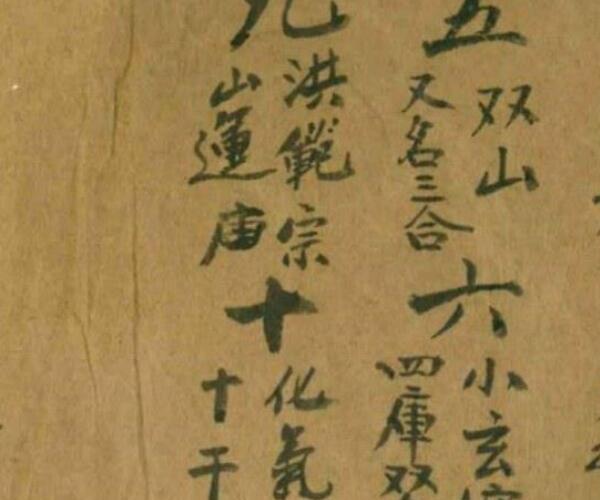 五
双山
又名三合
六
小玄
四庫双
九
洪範宗
山運庙
十
化氣
十干